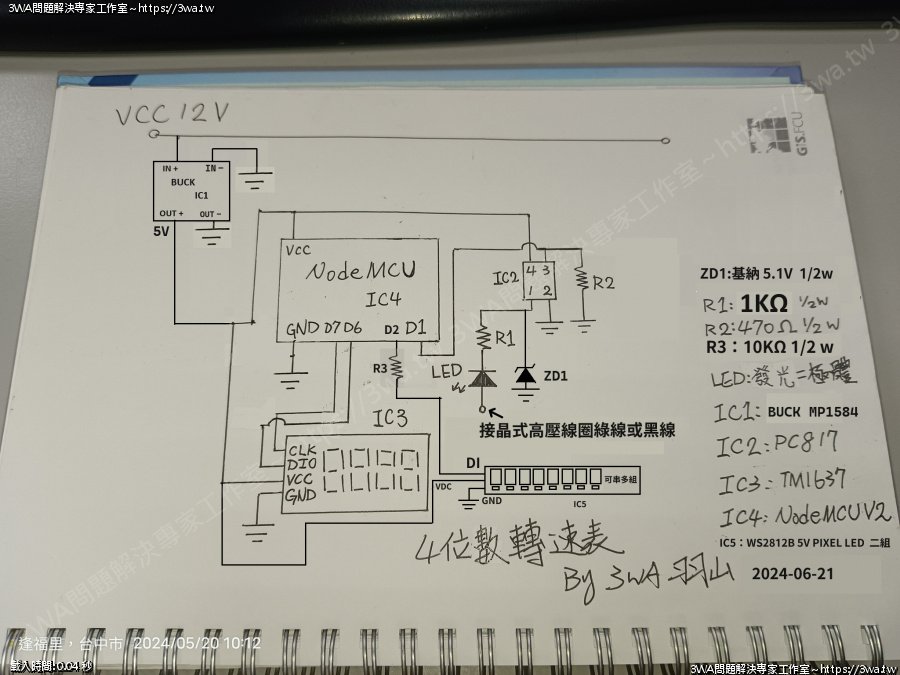 3WA問題解決專家工作室~https://3wa.tw
VCC 12V
GIS.FCU
IN+ IN-
BUCK
IC1
OUT+ OUT-
5V
VCC
NodeMCU
IC4
GND D7 D6 D2 D1
IC2
4 3
1 2
R2
R1
LED
ZD1
R3
接晶式高壓線圈綠線或黑線
IC3
CLK
DIO
VCC
GND
DI
VDC
GND
IC5
可串多組
ZD1:基納 5.1V 1/2w
R1: 1KΩ 1/2W
R2:470Ω 1/2W
R3：10KΩ 1/2 w
LED:發光二極體
IC1: BUCK MP1584
IC2:PC817
IC3: TM1637
IC4: NodeMCU V2
IC5：WS2812B 5V PIXEL LED 二組
4位數轉速表
By 3WA 羽山
2024-06-21
3WA問題解決專家工作室~https://3wa.tw
逢福里，台中市 2024/05/20 10:12
載入時間: 0.04 秒
3WA問題解決專家工作室~https://3wa.tw